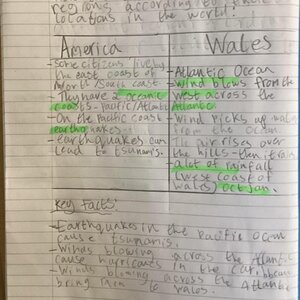 regions according to
locations in the world.
America
Wales
- Some citizens live by
the east coast of
North/South east
- They have 2 oceanic
coasts - Pacific/Atlantic
- On the Pacific coast
earthquakes
- earthquakes can
lead to tsunami's.
- Atlantic Ocean
wind blows from the
west across the
Atlantic
- Wind picks up
from the ocean
the air rises over
the hills - then it rains
- a lot of rainfall
(west coast of
Wales) Oct-Jan.
Key Facts:
- Earthquakes in the Pacific Ocean
cause tsunamis.
- Winds blowing across the Atlantic
cause hurricanes in the Caribbean
- Winds blowing across the Atlantic
bring rain to Wales.